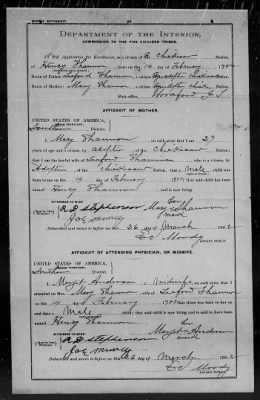 BIRTH AFFIDAVIT.
DEPARTMENT OF THE INTERIOR,
COMMISSION TO THE FIVE CIVILIZED TRIBES.
IN RE Application for Enrollment, as a citizen of the Chickasaw Nation,
of Henry Shannon, born on the 14 day of February, 190
Name of Father: Seaford Shannon a citizen of the Chickasaw Nation.
Name of Mother: Mary Shannon a citizen of the Nation.
Post-office
AFFIDAVIT OF MOTHER.
UNITED STATES OF AMERICA,
Southern District.
I, Mary Shannon, on oath state that I am 27
years of age and a citizen, by adoption of the Chickasaw Nation,
that I am the lawful wife of Seaford Shannon, who is a citizen, by
Adoption of the Chickasaw Nation; that a Male child was
born to me on the 14 day of February, that said child has been named
Henry Shannon, and is now living.
her
Mary x Shannon
mark
WITNESSES TO MARK:
R B Stephenson
Joe
Subscribed and sworn to before me this 26 day of March 1902
E C Moody
NOTARY PUBLIC.
AFFIDAVIT OF ATTENDING PHYSICIAN, OR MIDWIFE.
UNITED STATES OF AMERICA,
Southern District.
I, Anderson, a midwife, on oath state that I
attended on Mrs. Mary Shannon, wife of Seaford Shannon
on the 14 day of February, that there was born to her on said date a
Male child; that said child is now living and is said to have been
named Henry Shannon
her
Anderson
mark
WITNESSES TO MARK:
R B Stephenson
Joe
Subscribed and sworn to before me this 26 day of March 1902
E C Moody
NOTARY PUBLIC.